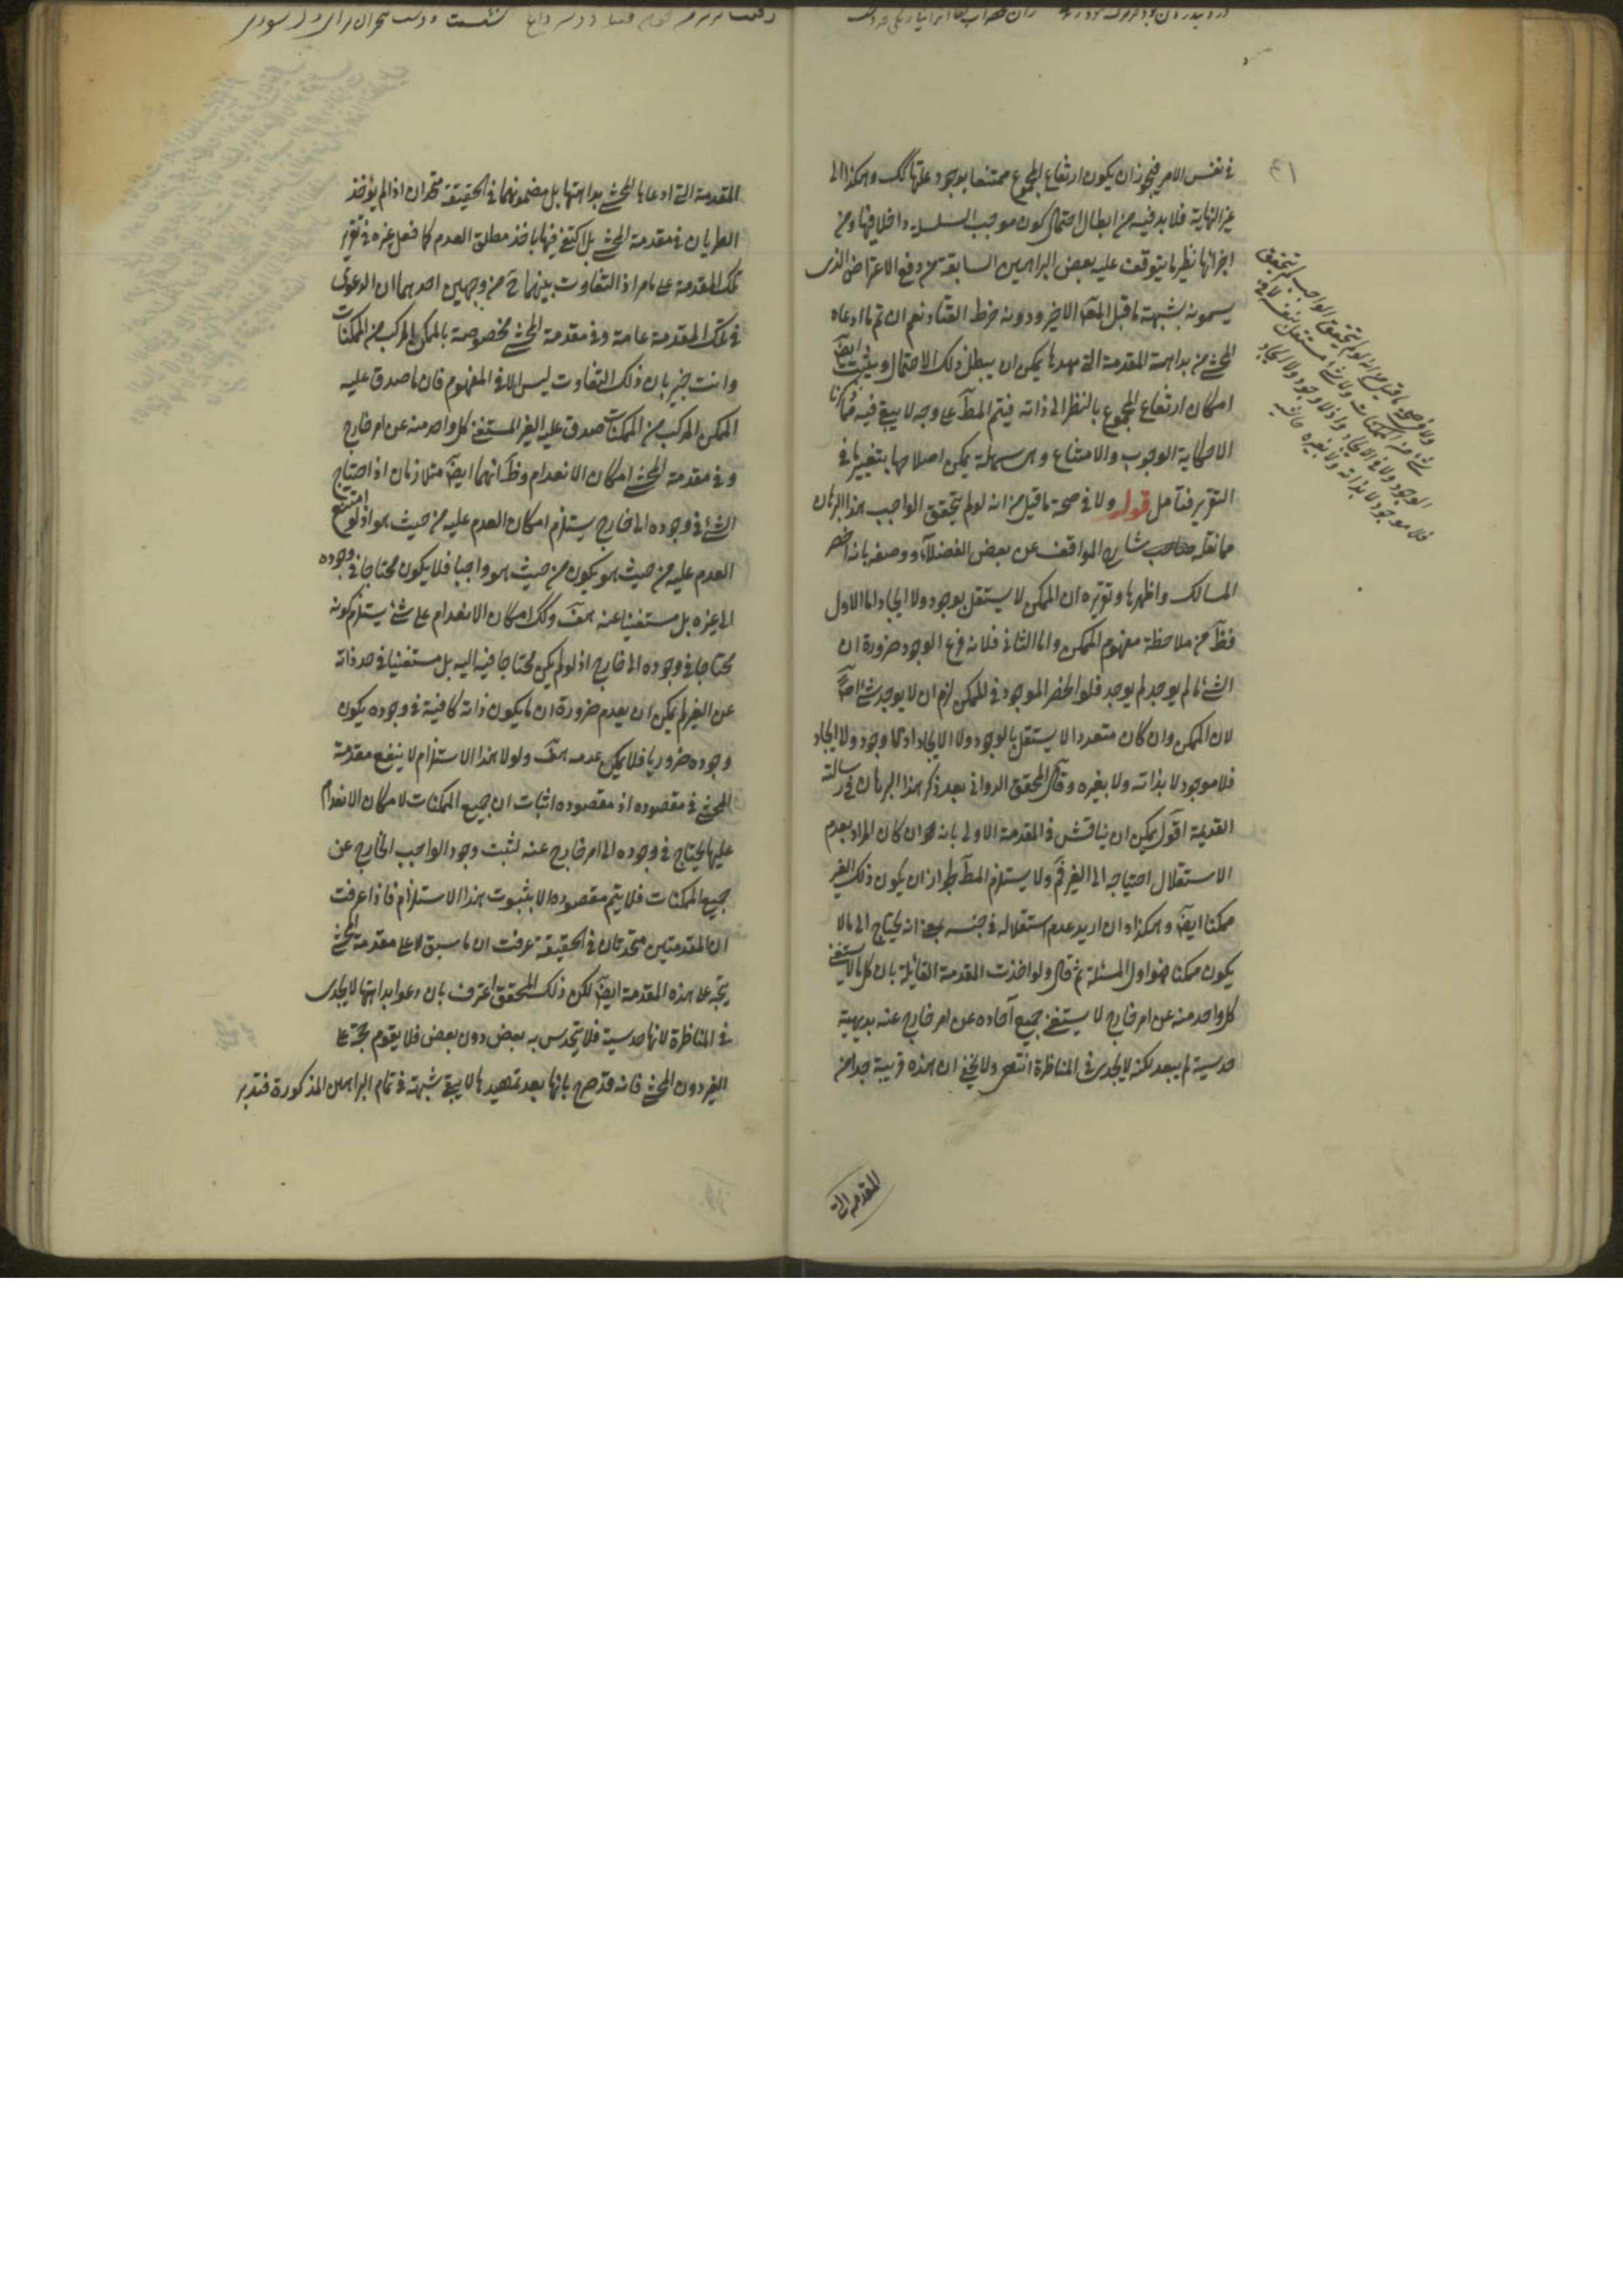 في نفس الامر فيجوز ان يكون ارتفاع المجموع ممتنعا بوجود علتها كك وهكذا الى
غير النهاية فلا بد فيه من ابطال احتمال كون موجب السلسلة داخلا فيها ومن
اجزائها نظير ما يتوقف عليه بعض البراهين السابقة من دفع الاعتراض الذى
يسمونه بشبهة ما قبل المعلول الاخير ودونه خرط القتاد نعم ان تم ما ادعاه
المحشى من بداهة المقدمة التى مهدها يمكن ان يبطل ذلك الاحتمال ويثبت ايضا
امكان ارتفاع المجموع بالنظر الى ذاته فيتم المط على وجه لا يبقى فيه
الاحكاية الوجوب والامتناع وهى سهلة يمكن اصلاحها بتغيير ما فى
التقرير فتأمل قوله ولا فى صحة ما قيل من انه لو لم يتحقق الواجب هذا البرهان
مما نقله شارح المواقف عن بعض الفضلاء ووصفه بانه اخصر
المسالك واظهرها وتقريره ان الممكن لا يستقل بوجود ولا ايجاد اما الاول
فظ من ملاحظة مفهوم الممكن واما الثانى فلانه فرع الوجود ضرورة ان
الشئ ما لم يوجد لم يوجد فلو انحصر الموجود فى الممكن لزم ان لا يوجد شئ اصلا
لان الممكن وان كان متعددا لا يستقل بالوجود ولا الايجاد اذ لا وجود ولا ايجاد
فلا موجود لا بذاته ولا بغيره وقال المحقق الدوانى بعد ذكر هذا البرهان فى رسالته
القديمة اقول يمكن ان يناقش فى المقدمة الاولى بانه ان كان المراد بعدم
الاستقلال احتياجه الى الغير فم ولا يستلزم المط لجواز ان يكون ذلك الغير
ممكنا ايضا وهكذا وان اريد عدم استقلاله فى جنسه بمعنى انه يحتاج الى ما لا
يكون ممكنا فهو اول المسئلة ثم قال ولو اخذت المقدمة القائلة بان كل ما لا يستغنى
كل واحد منه عن امر خارج لا يستغنى جميع آحاده عن امر خارج عنه بديهية
حدسية لم يبعد لكنه لا يجدى فى المناظرة انتهى ولا يخفى ان هذه قريبة جدا من
المقدمة التى
ولا فى صحة ما قيل من انه لو لم يتحقق الواجب لم يتحقق
شئ من الممكنات ولا شئ مستقل بنفسه لا فى
الوجود ولا فى الايجاد واذ لا وجود ولا ايجاد
فلا موجود لا بذاته ولا بغيره حاشيه
المقدمة التى ادعاها المحشى بداهتها بل مضمونهما فى الحقيقة متحدان اذا لم يؤخذ
الطريان فى مقدمة المحشى بل اكتفى فيها باخذ مطلق العدم كما فعل غيره فى تقرير
تلك المقدمة على ما مر اذ التفاوت بينهما ح من وجهين احدهما ان الدعوى
فى تلك المقدمة عامة وفى مقدمة المحشى مخصوصة بالممكن المركب من الممكنات
وانت خبير بان ذلك التفاوت ليس الا فى المفهوم فان ما صدق عليه
الممكن المركب من الممكنات صدق عليه الغير المستغنى كل واحد منه عن امر خارج
وفى مقدمة المحشى امكان الانعدام وظ انهما ايضا متلازمان اذ احتياج
الشئ فى وجوده الى خارج يستلزم امكان العدم عليه من حيث هو اذ لو امتنع
العدم عليه من حيث هو يكون من حيث هو واجبا فلا يكون محتاجا فى وجوده
الى غيره بل مستغنيا عنه هف وكك امكان الانعدام على شئ يستلزم كونه
محتاجا فى وجوده الى خارج اذ لو لم يكن محتاجا فيه اليه بل مستغنيا فى حد ذاته
عن الغير لم يمكن ان يعدم ضرورة ان ما يكون ذاته كافية فى وجوده يكون
وجوده ضروريا فلا يمكن عدمه هف ولولا هذا الاستلزام لا ينفع مقدمة
المحشى فى مقصوده اذ مقصوده اثبات ان جميع الممكنات لامكان الانعدام
عليها يحتاج فى وجوده الى امر خارج عنه لثبت وجود الواجب الخارج عن
جميع الممكنات فلا يتم مقصوده الا بثبوت هذا الاستلزام فاذا عرفت
ان المقدمتين متحدتان فى الحقيقة عرفت ان ما سبق لا على مقدمة المحشى
يتجه على هذه المقدمة ايضا لكن ذلك المحقق اعترف بان دعوا بداهتها لا يجدى
فى المناظرة لانها حدسية فلا يتحدس به بعض دون بعض فلا يقوم حجة على
الغير دون المحشى فانه قد صرح بانها بعد تمهيدها لا يبقى شبهة فى تمام البراهين المذكورة فتدبر